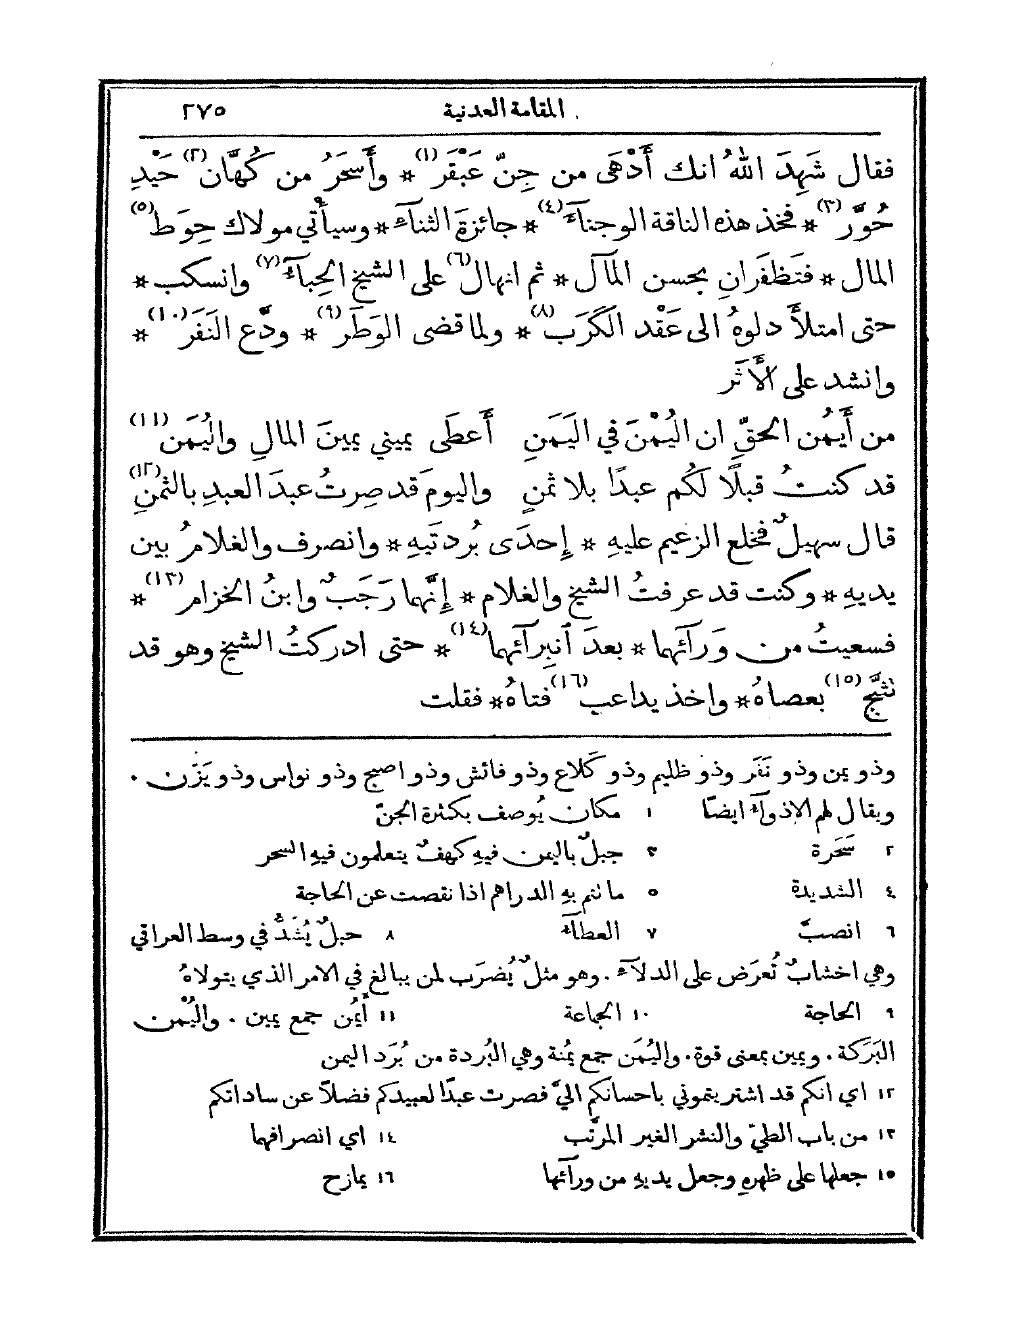 المقامة العدنية ٢٧٥
فقال شَهِدَ اللهُ انك أَدْهَى من جِنّ عَبْقَر(١) * وأَسحَرُ من كُهَّان(٢) حَيْدِ
حُوَّر(٣) * فخذ هذه الناقة الوجنآءَ(٤) * جائزةَ الثنآءِ * وسيأتي مولاك حِوَط(٥)
المال * فتَظفَرانِ بحسن المآل * ثم انهال(٦) على الشيخ الحِبآءُ(٧) وانسكب *
حتى امتلأَ دلوهُ الى عَقْد الكَرَب(٨) * ولما قضى الوَطَر(٩) * ودَّع النَفَر(١٠) *
وانشد على الأَثَر
من أَيمُن الحقِّ ان اليُمْنَ في اليَمَنِ أَعطَى يميني يمينَ المالِ واليُمَنِ(١١)
قد كنتُ قبلًا لكُم عبدًا بلا ثمنٍ واليومَ قد صِرتُ عبدَ العبدِ بالثمنِ(١٢)
قال سهيلٌ فخلع الزعيم عليهِ * إِحدَى بُردتَيهِ * وانصرف والغلامُ بين
يديهِ * وكنت قد عرفتُ الشيخ والغلام * إِنَّهما رَجَبٌ وابنُ الخزام(١٣) *
فسعيتُ من وَرآئهما * بعدَ ٱنبِرآئهما(١٤) * حتى ادركتُ الشيخ وهو قد
نثَّج(١٥) بعصاهُ * واخذ يداعب(١٦) فتاهُ * فقلت
وذو يمن وذو نَفَر وذو ظليم وذو كَلاع وذو فائش وذو اصبح وذو نواس وذو يَزَن .
ويقال لهم الاذوآءُ ايضًا ١ مكان يُوصف بكثرة الجنّ
٢ سَحَرة ٣ جبلٌ باليمن فيهِ كهفٌ يتعلمون فيهِ السحر
٤ الشديدة ٥ ما نتم بهِ الدراهم اذا نقصت عن الحاجة
٦ انصبَّ ٧ العطآءُ ٨ حبلٌ يُشَدُّ في وسط العراقي
وهي اخشابٌ تُعرَض على الدلآءِ . وهو مثلٌ يُضرَب لمن يبالغ في الامر الذي يتولاهُ
٩ الحاجة ١٠ الجماعة ١١ أَيمُن جمع يمين . واليُمْن
البَرَكة . ويمين بمعنى قوة . واليُمَن جمع يمُنة وهي البُردة من بُرَد اليمن
١٢ اي انكم قد اشتريتموني باحسانكم اليَّ فصرت عبدًا لعبيدكم فضلًا عن ساداتكم
١٣ من باب الطيّ والنشر الغير المرتَّب ١٤ اي انصرافهما
١٥ جعلها على ظهرهِ وجعل يديهِ من ورآئها ١٦ يمازح